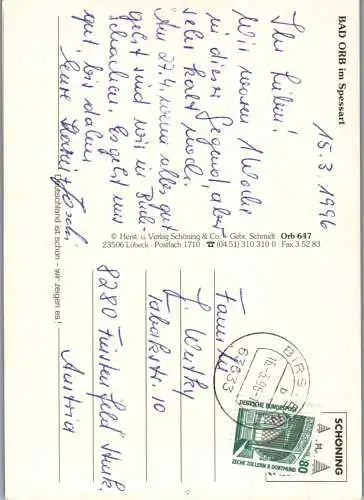 BAD ORB im Spessart
15.3.1996
Ihr Lieben!
Wir waren 1 Woche
in dieser Gegend, aber
sehr kalt noch.
Am 27.4. wenn alles gut
geht sind wir in
Es geht uns
gut, bis dahin,
Eure
Deutschland ist schön – wir zeigen es!
© Herst. u. Verlag Schöning & Co. · Gebr. Schmidt · Orb 647
23506 Lübeck · Postfach 1710 · ☎ (04 51) 310 310 0 · Fax 3 52 83
Familie
Tabakstr. 10
8280 Fürstenfeld Stmk.
Austria
BIRS
63633
16.3.96
DEUTSCHE BUNDESPOST
80
ZECHE ZOLLERN II DORTMUND
SCHÖNING